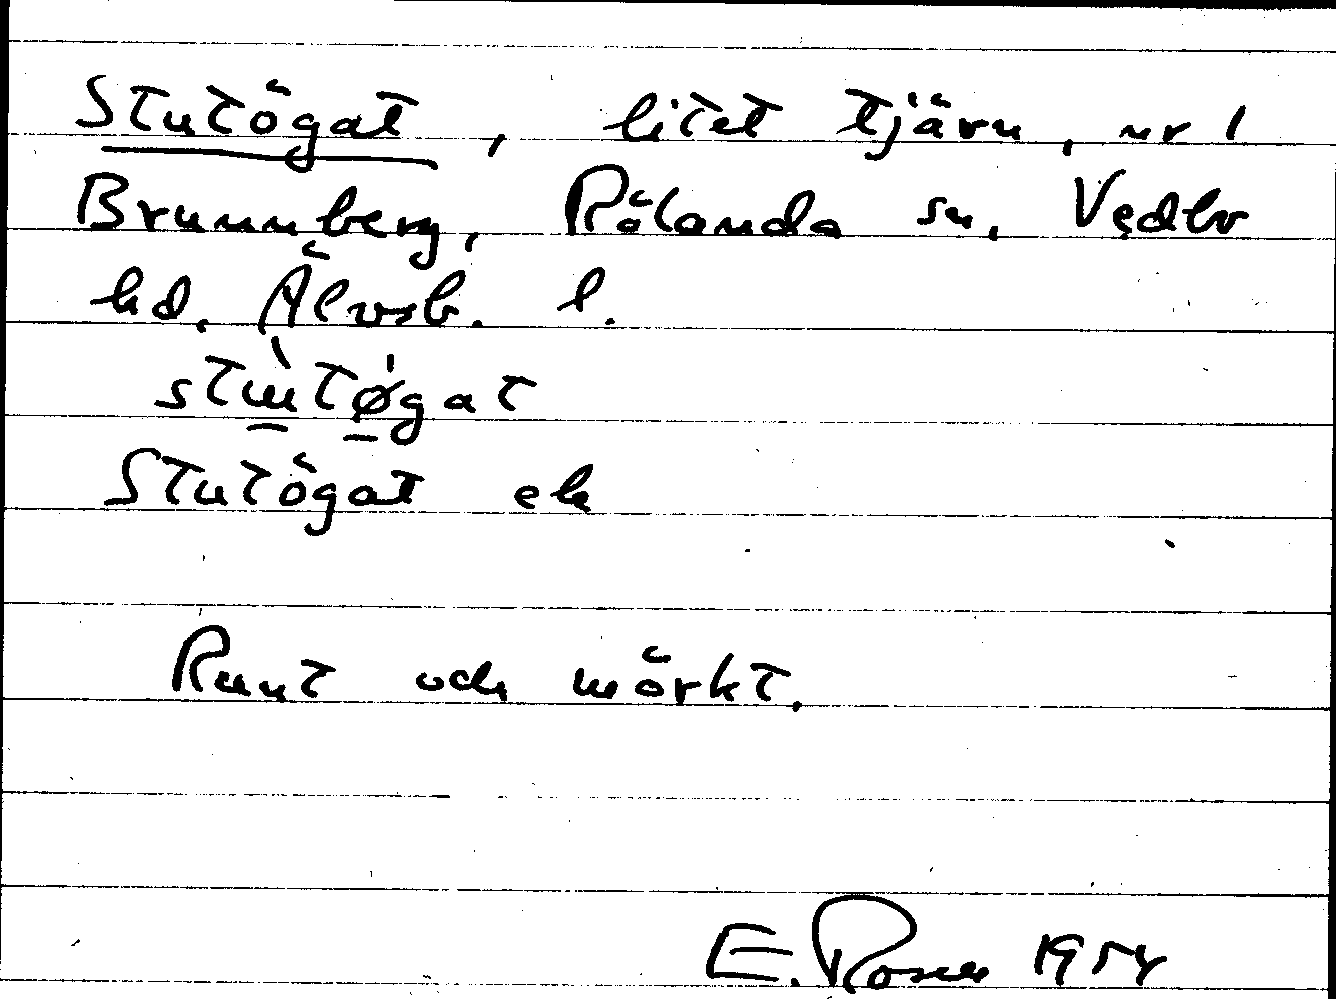 Stutögat, litet tjärn, nr 1
Brunnberg, Rölanda sn, Vedbo
hd, Älvsb. l.
Stutögat ek
Runt och mörkt.
E. Rosén 1954